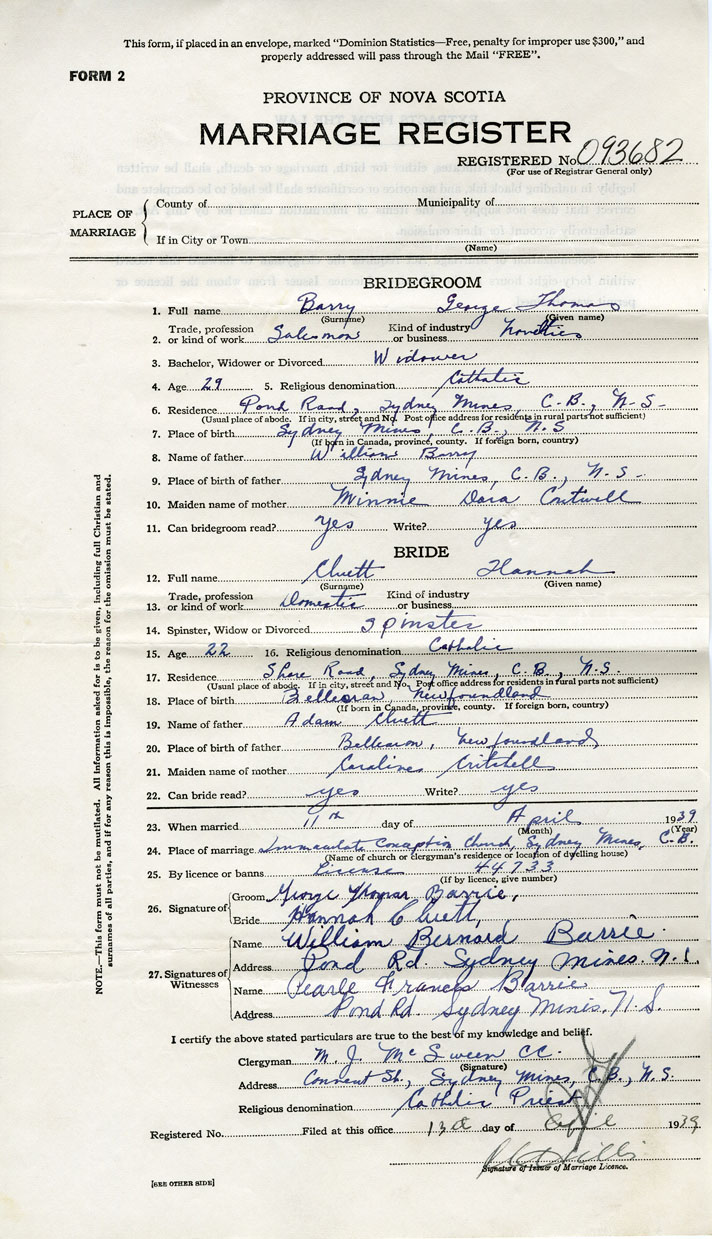 This form, if placed in an envelope, marked "Dominion Statistics—Free, penalty for improper use $300," and
properly addressed will pass through the Mail "FREE".
FORM 2
PROVINCE OF NOVA SCOTIA
MARRIAGE REGISTER
REGISTERED No. 093682
(For use of Registrar General only)
PLACE OF MARRIAGE
County of Municipality of
If in City or Town
(Name)
BRIDEGROOM
1. Full name Barry George Thomas
(Surname) (Given name)
2. Trade, profession or kind of work Salesman Kind of industry or business Novelties
3. Bachelor, Widower or Divorced Widower
4. Age 29 5. Religious denomination Catholic
6. Residence Pond Road, Sydney Mines, C.B., N.S.
(Usual place of abode. If in city, street and No. Post office address for residents in rural parts not sufficient)
7. Place of birth Sydney Mines, C.B., N.S
(If born in Canada, province, county. If foreign born, country)
8. Name of father William Barry
9. Place of birth of father Sydney Mines, C.B., N.S.
10. Maiden name of mother Minnie Dora
11. Can bridegroom read? yes Write? yes
BRIDE
12. Full name Cluett Hannah
(Surname) (Given name)
13. Trade, profession or kind of work Domestic Kind of industry or business
14. Spinster, Widow or Divorced Spinster
15. Age 22 16. Religious denomination Catholic
17. Residence Shore Road, Sydney Mines, C.B., N.S.
(Usual place of abode. If in city, street and No. Post office address for residents in rural parts not sufficient)
18. Place of birth Newfoundland
(If born in Canada, province, county. If foreign born, country)
19. Name of father Adam Cluett
20. Place of birth of father Newfoundland
21. Maiden name of mother Caroline
22. Can bride read? yes Write? yes
23. When married 11th day of April 1939
(Month) (Year)
24. Place of marriage Immaculate Conception Church, Sydney Mines, C.B.
(Name of church or clergyman's residence or location of dwelling house)
25. By licence or banns License 44733
(If by licence, give number)
26. Signature of
Groom George Thomas Barrie,
Bride Hannah Cluett,
27. Signatures of Witnesses
Name William Bernard Barrie.
Address Pond Rd. Sydney Mines. N.S.
Name Pearle Francis Barrie
Address Pond Rd. Sydney Mines. N.S.
I certify the above stated particulars are true to the best of my knowledge and belief.
Clergyman M. J. McSween CC.
(Signature)
Address Sydney Mines, C.B., N.S.
Religious denomination Catholic Priest
Registered No. Filed at this office 13th day of April 1939
Signature of Issuer of Marriage Licence.
[SEE OTHER SIDE]
NOTE.—This form must not be mutilated. All information asked for is to be given, including full Christian and
surnames of all parties, and if for any reason this is impossible, the reason for the omission must be stated.